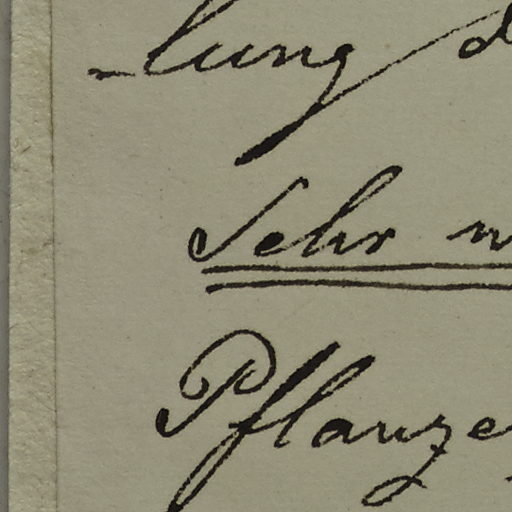 -lung d
Sehr
Pflanze